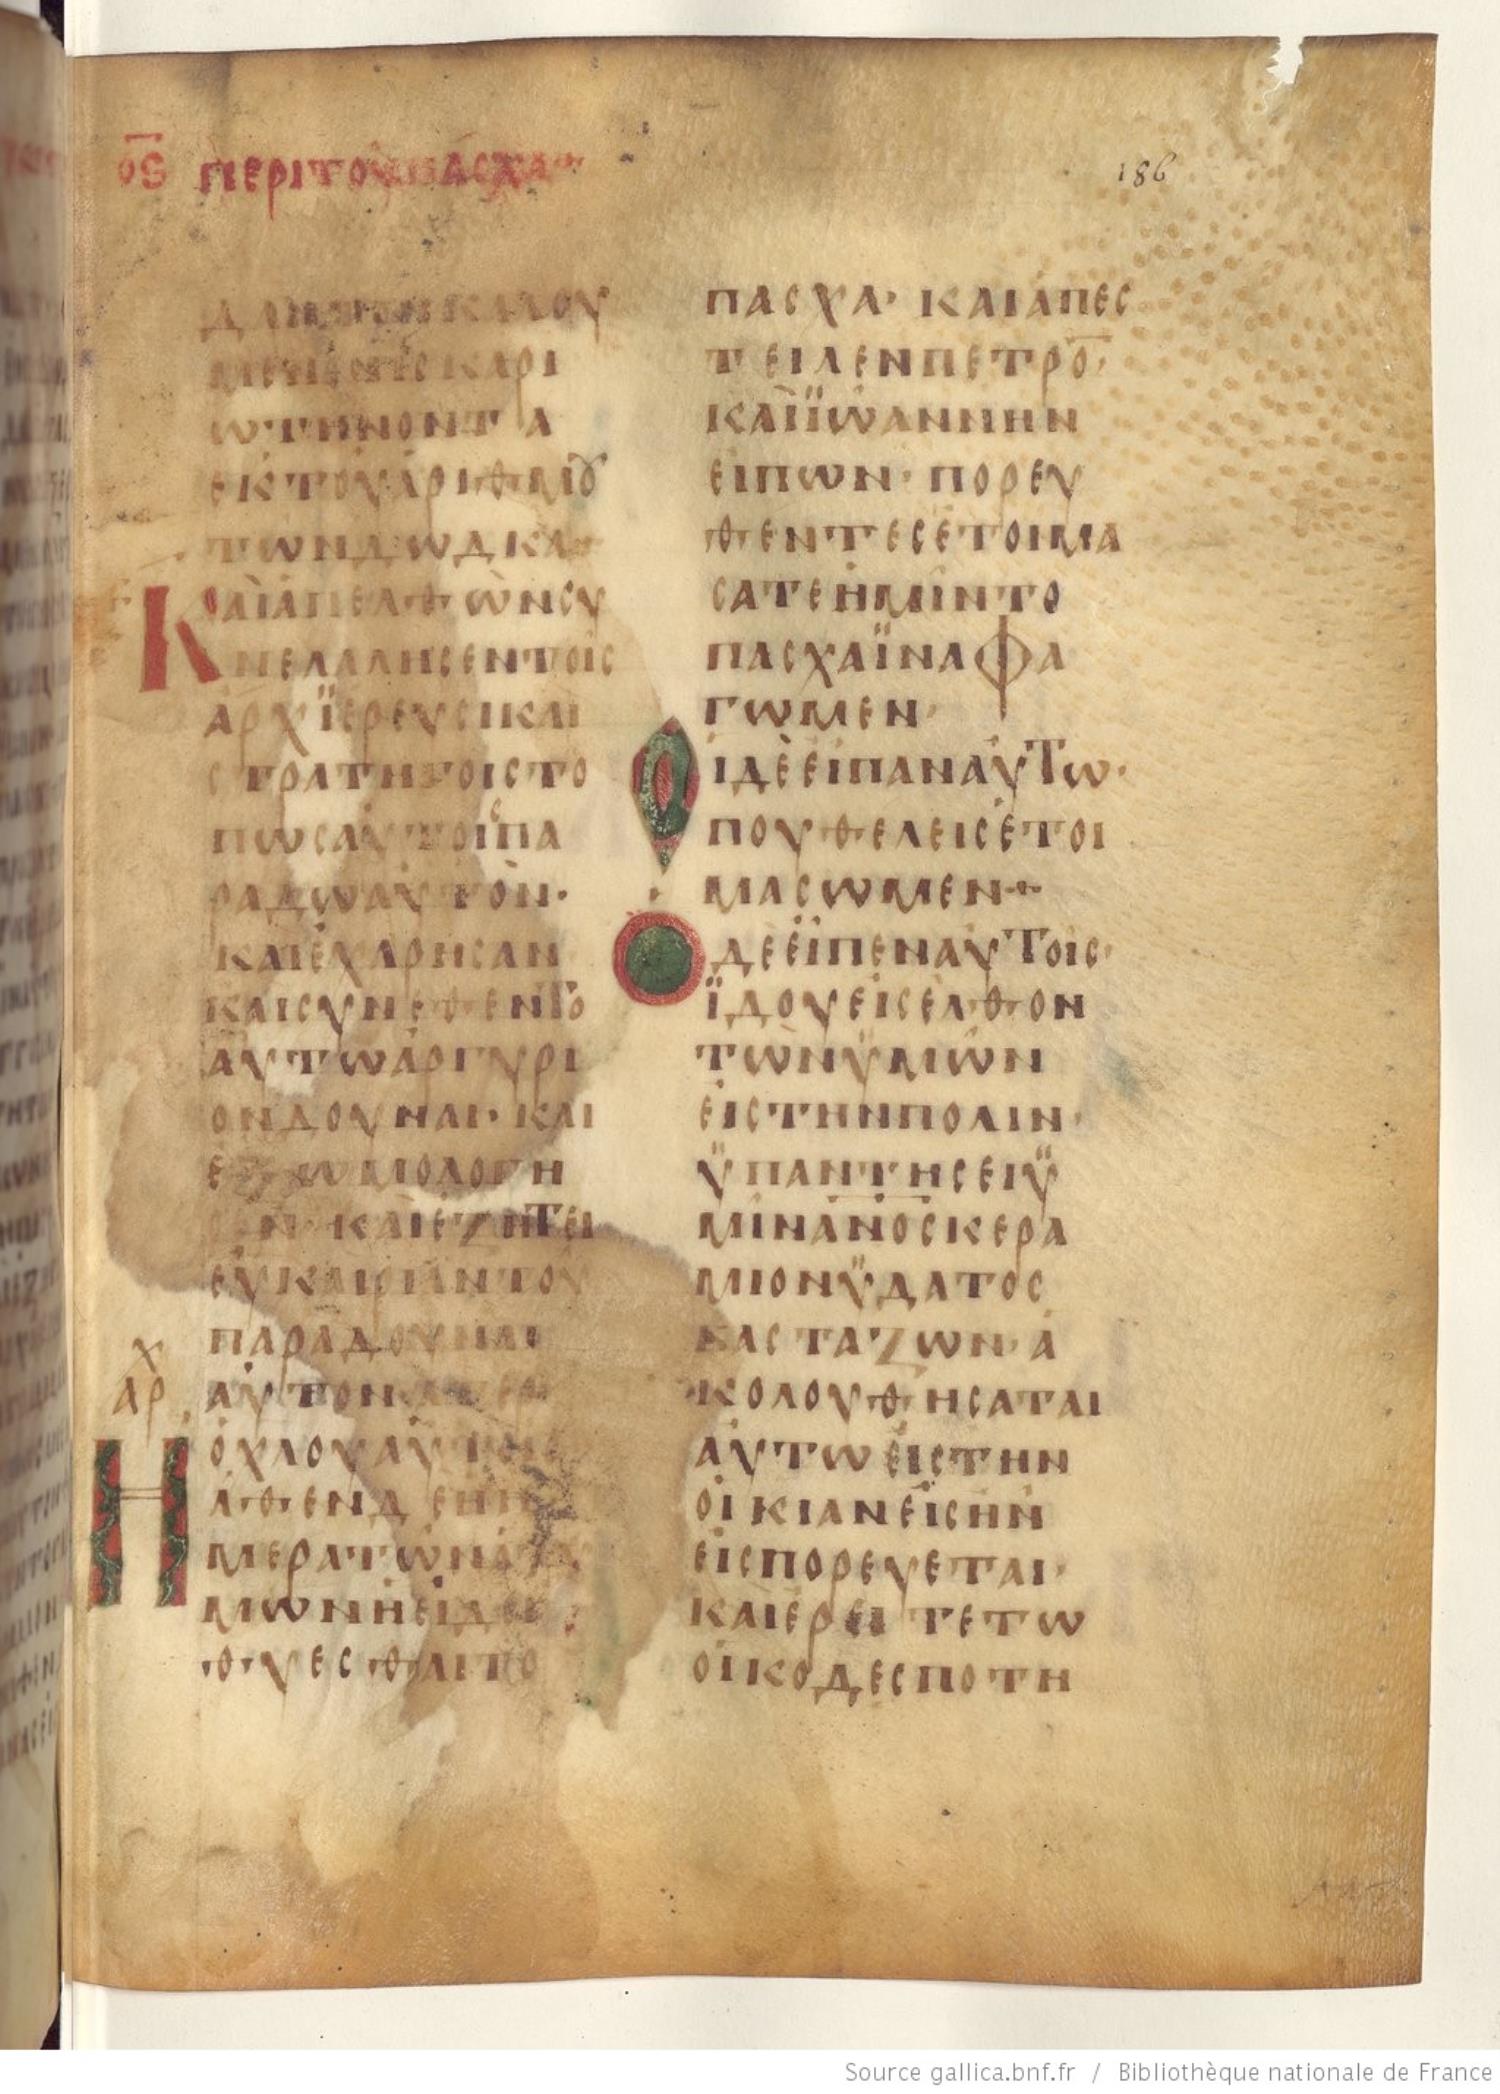 ος περι του πασχα
186
δαν τον καλου
μενον ισκαρι
ωτην οντα
εκ του αριθμου
των δωδκα
Και απελθων συ
νελαλησεν τοις
αρχϊερευσι και
στρατηγοις το
πως αυτοις πα
ραδω αυτον·
και εχαρησαν
και συνεθεντο
αυτω αργυρι
ον δουναι· και
εξωμολογη
σεν· και εζητει
ευκαιριαν του
παραδουναι
χ
αρ
αυτον ατερ
οχλου αυτοις
Ηλθεν δε η η
μερα των αζυ
μων η ει δει
θυεσθαι το
πασχα· και απεσ
τειλεν πετρο̅·
και ϊωαννην
ειπων· πορευ
θεντες ετοιμα
σατε ημιν το
πασχα ϊνα φα
γωμεν·
Οι δε ειπαν αυτω·
που θελεις ετοι
μασωμεν·
Ο δε ειπεν αυτοις·
ϊδου εισελθον
των ϋμων
εις την πολιν·
ϋπαντησει ϋ
μιν α̅ν̅ο̅ς κερα
μιον ϋδατος
βασταζων· α
κολουθησαται
αυτω εις την
οικιαν εις ην
εισπορευεται·
και ερειτε τω
οικοδεσποτη
Source gallica.bnf.fr / Bibliothèque nationale de France